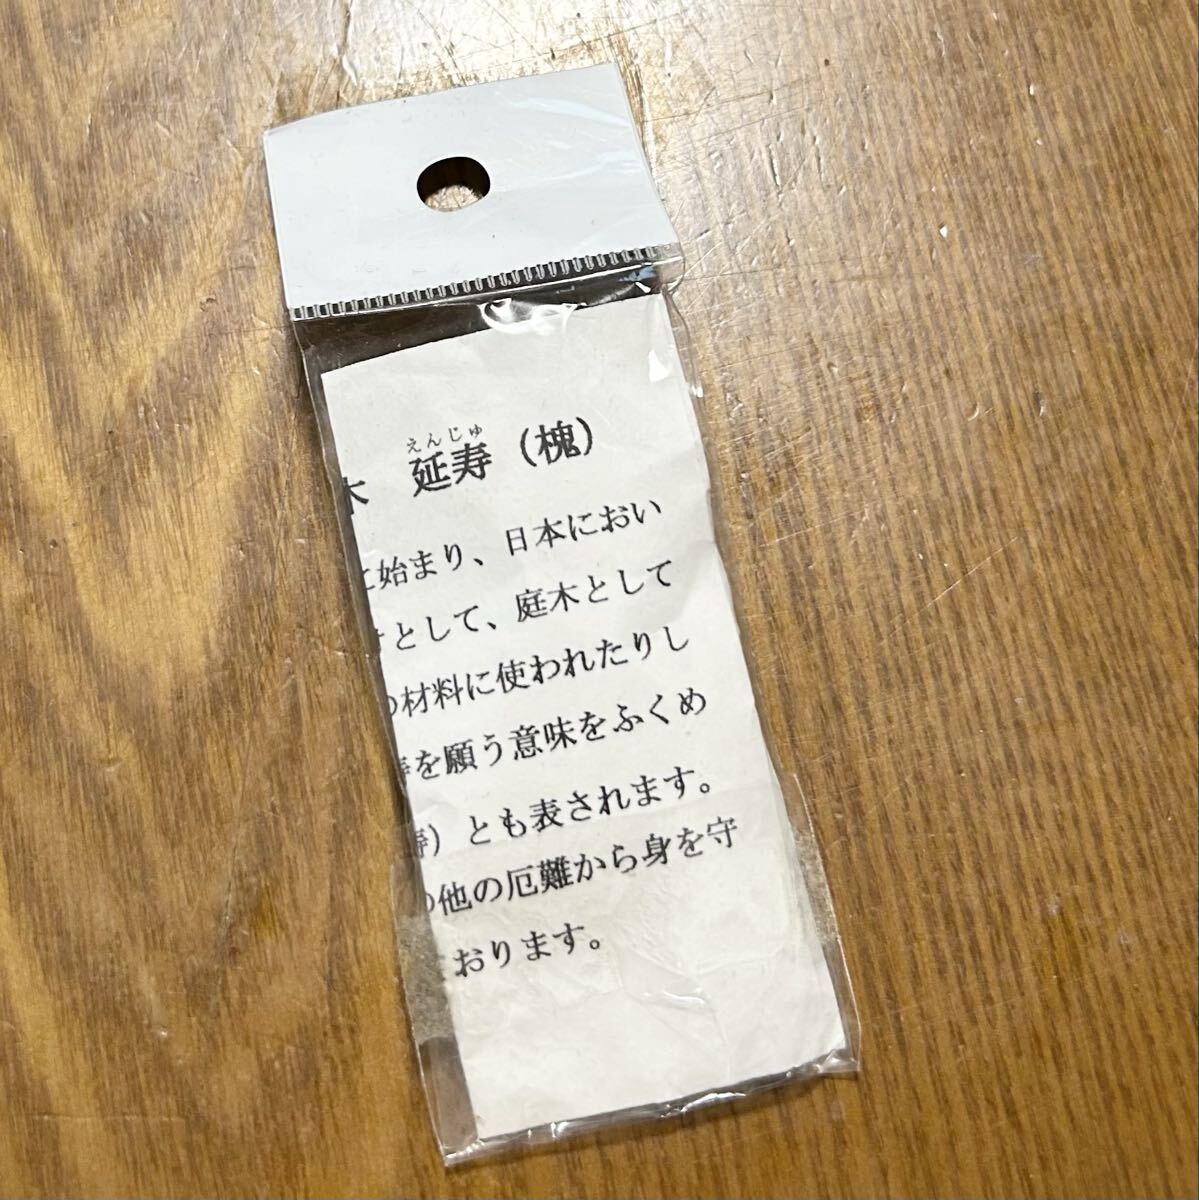 えんじゅ
木 延寿（槐）
に始まり、日本におい
として、庭木として
の材料に使われたりし
寿を願う意味をふくめ
寿）とも表されます。
の他の厄難から身を守
おります。